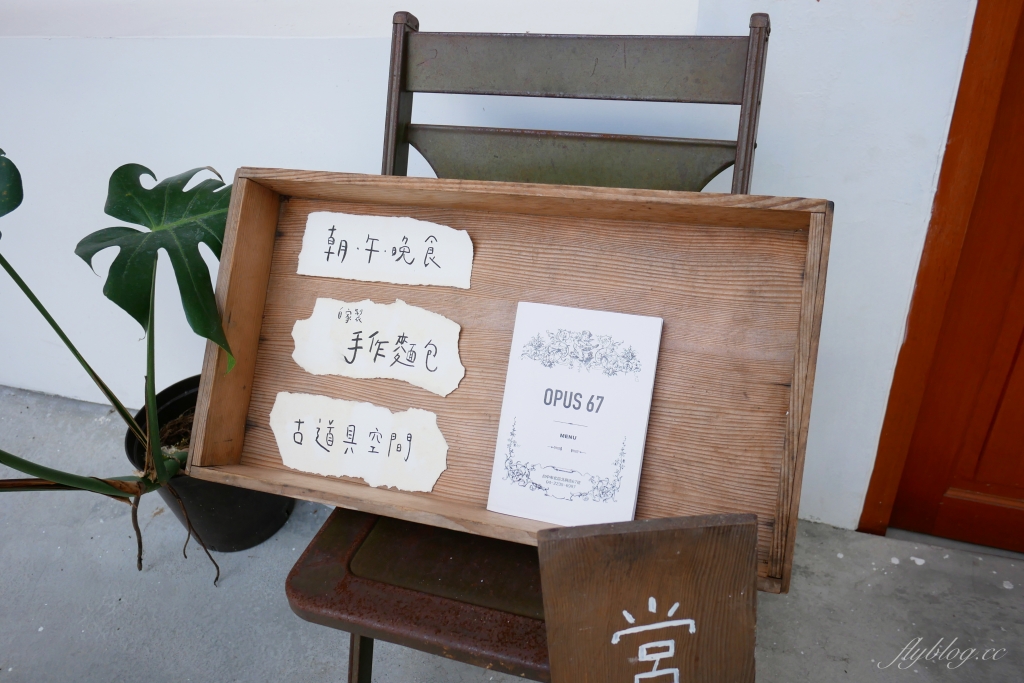 朝·午·晚食
自家製
手作麵包
古道具空間
OPUS 67
MENU
営
flyblog.cc